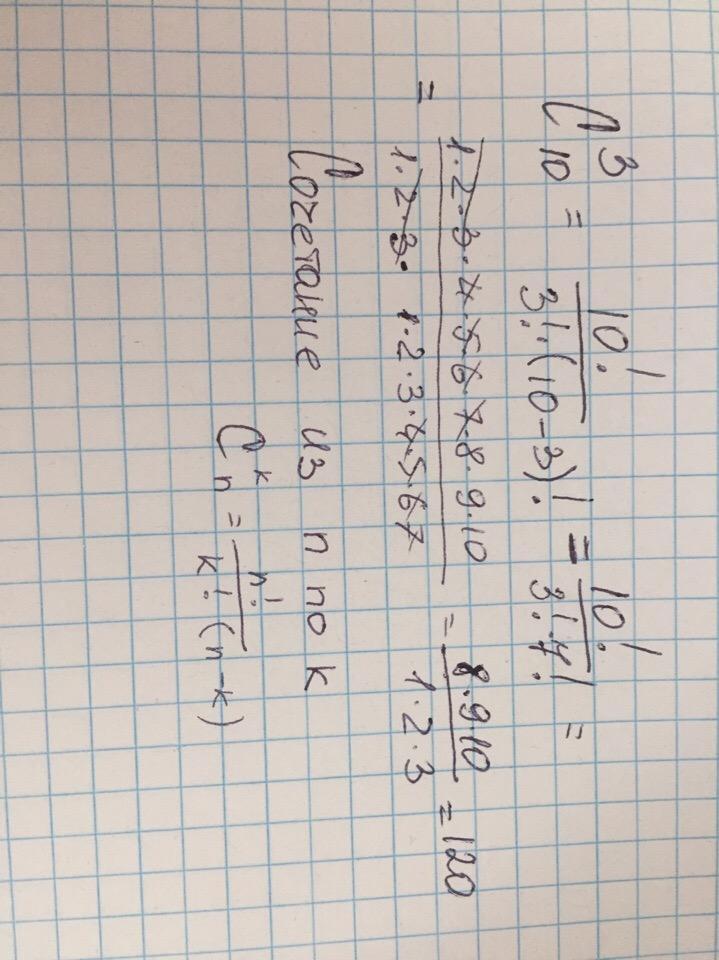 C³₁₀ = 10! / 3!·(10-3)! = 10! / 3!·7! =
= 1·2·3·4·5·6·7·8·9·10 / 1·2·3·1·2·3·4·5·6·7 = 8·9·10 / 1·2·3 = 120
Сочетание из n по k
Cₙᵏ = n! / k!(n-k)